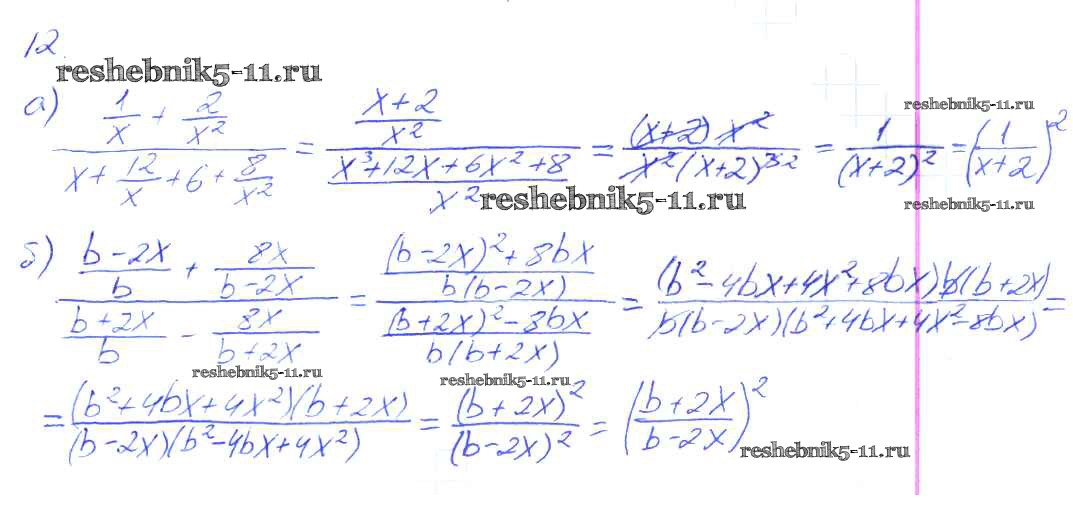 12.
reshebnik5-11.ru
а) (1/x + 2/x²)/(x + 12/x + 6 + 8/x²) = ((x+2)/x²)/((x³+12x+6x²+8)/x²) = ((x+2) x²)/(x²(x+2)^3 2) = 1/(x+2)² = (1/(x+2))²
reshebnik5-11.ru
reshebnik5-11.ru
reshebnik5-11.ru
б) ((b-2x)/b + 8x/(b-2x))/((b+2x)/b - 8x/(b+2x)) = (((b-2x)²+8bx)/(b(b-2x)))/(((b+2x)²-8bx)/(b(b+2x))) = ((b²-4bx+4x²+8bx)b(b+2x))/(b(b-2x)(b²+4bx+4x²-8bx)) =
reshebnik5-11.ru
reshebnik5-11.ru
= ((b²+4bx+4x²)(b+2x))/((b-2x)(b²-4bx+4x²)) = (b+2x)²/(b-2x)² = ((b+2x)/(b-2x))²
reshebnik5-11.ru